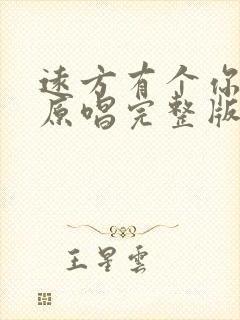 遠方有个你
原唱完整版
王星雲